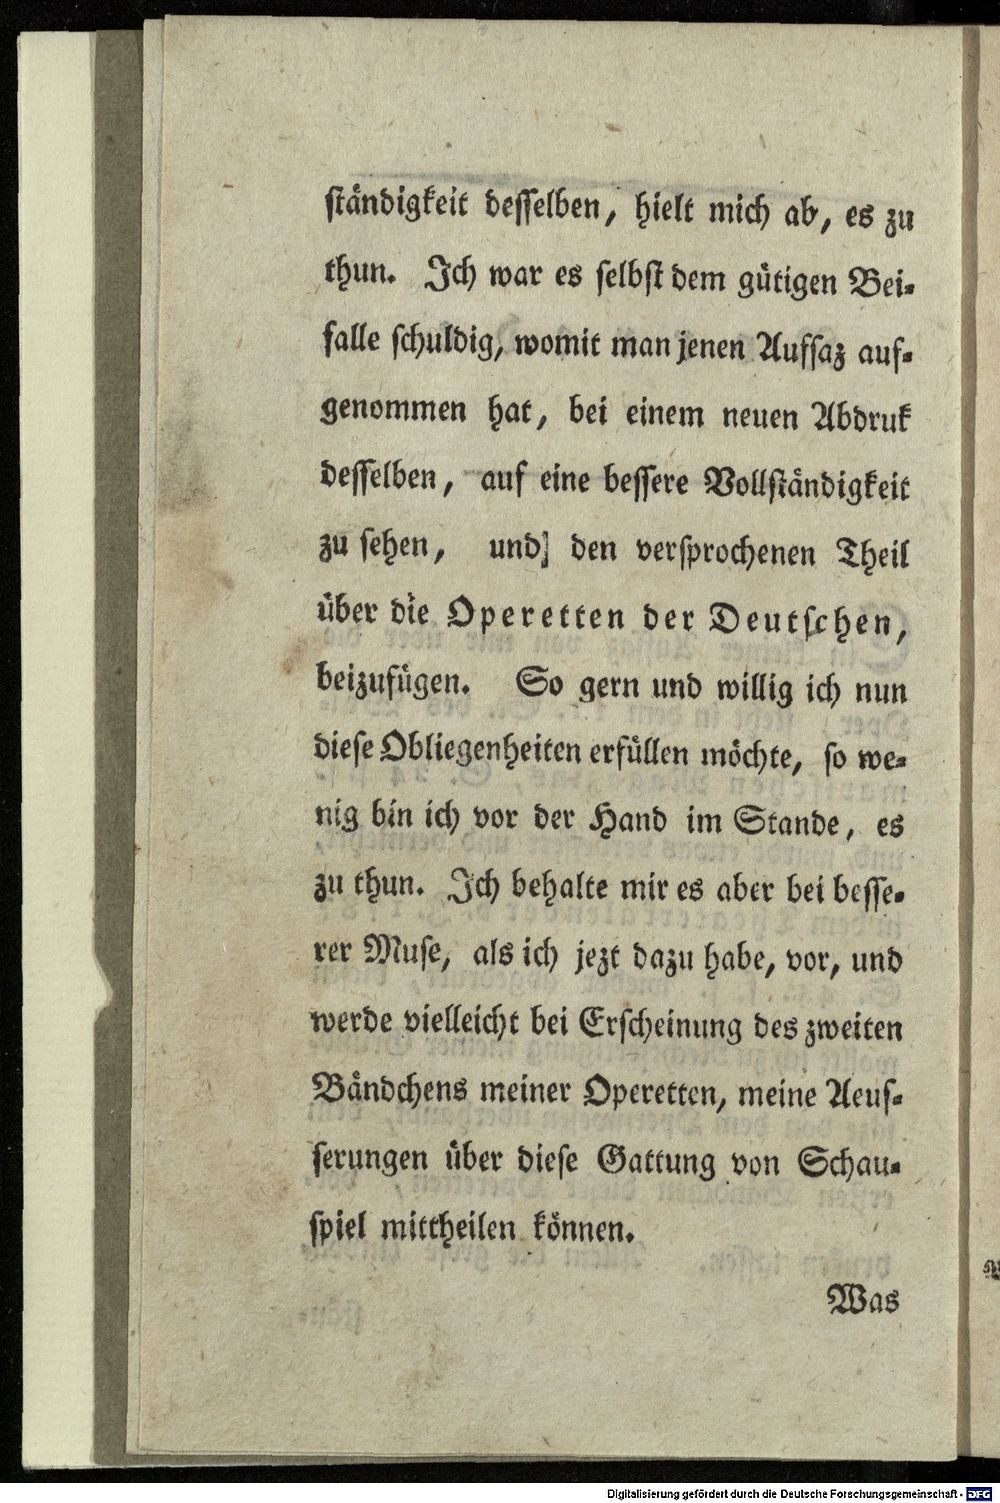 ständigkeit desselben, hielt mich ab, es zu
thun. Ich war es selbst dem gütigen Bei-
falle schuldig, womit man jenen Aufsaz auf-
genommen hat, bei einem neuen Abdruk
desselben, auf eine bessere Vollständigkeit
zu sehen, und] den versprochenen Theil
über die Operetten der Deutschen,
beizufügen. So gern und willig ich nun
diese Obliegenheiten erfüllen möchte, so we-
nig bin ich vor der Hand im Stande, es
zu thun. Ich behalte mir es aber bei besse-
rer Muse, als ich jezt dazu habe, vor, und
werde vielleicht bei Erscheinung des zweiten
Bändchens meiner Operetten, meine Aeus-
serungen über diese Gattung von Schau-
spiel mittheilen können.
Was
Digitalisierung gefördert durch die Deutsche Forschungsgemeinschaft - DFG